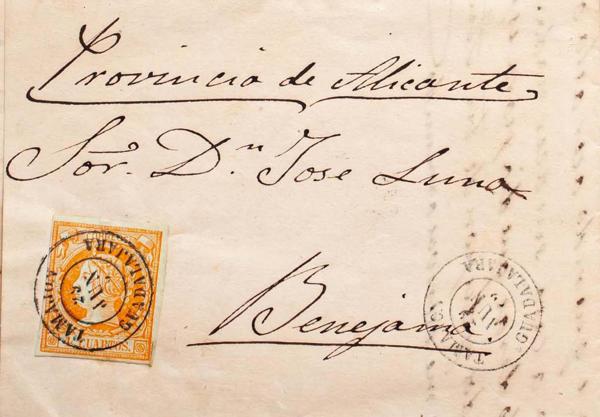 Provincia de Alicante
Sor. Dn. Jose Luna
Benejama
TAMAJON
GUADALAJARA
CUARTOS.
TAMAJON
GUADALAJARA